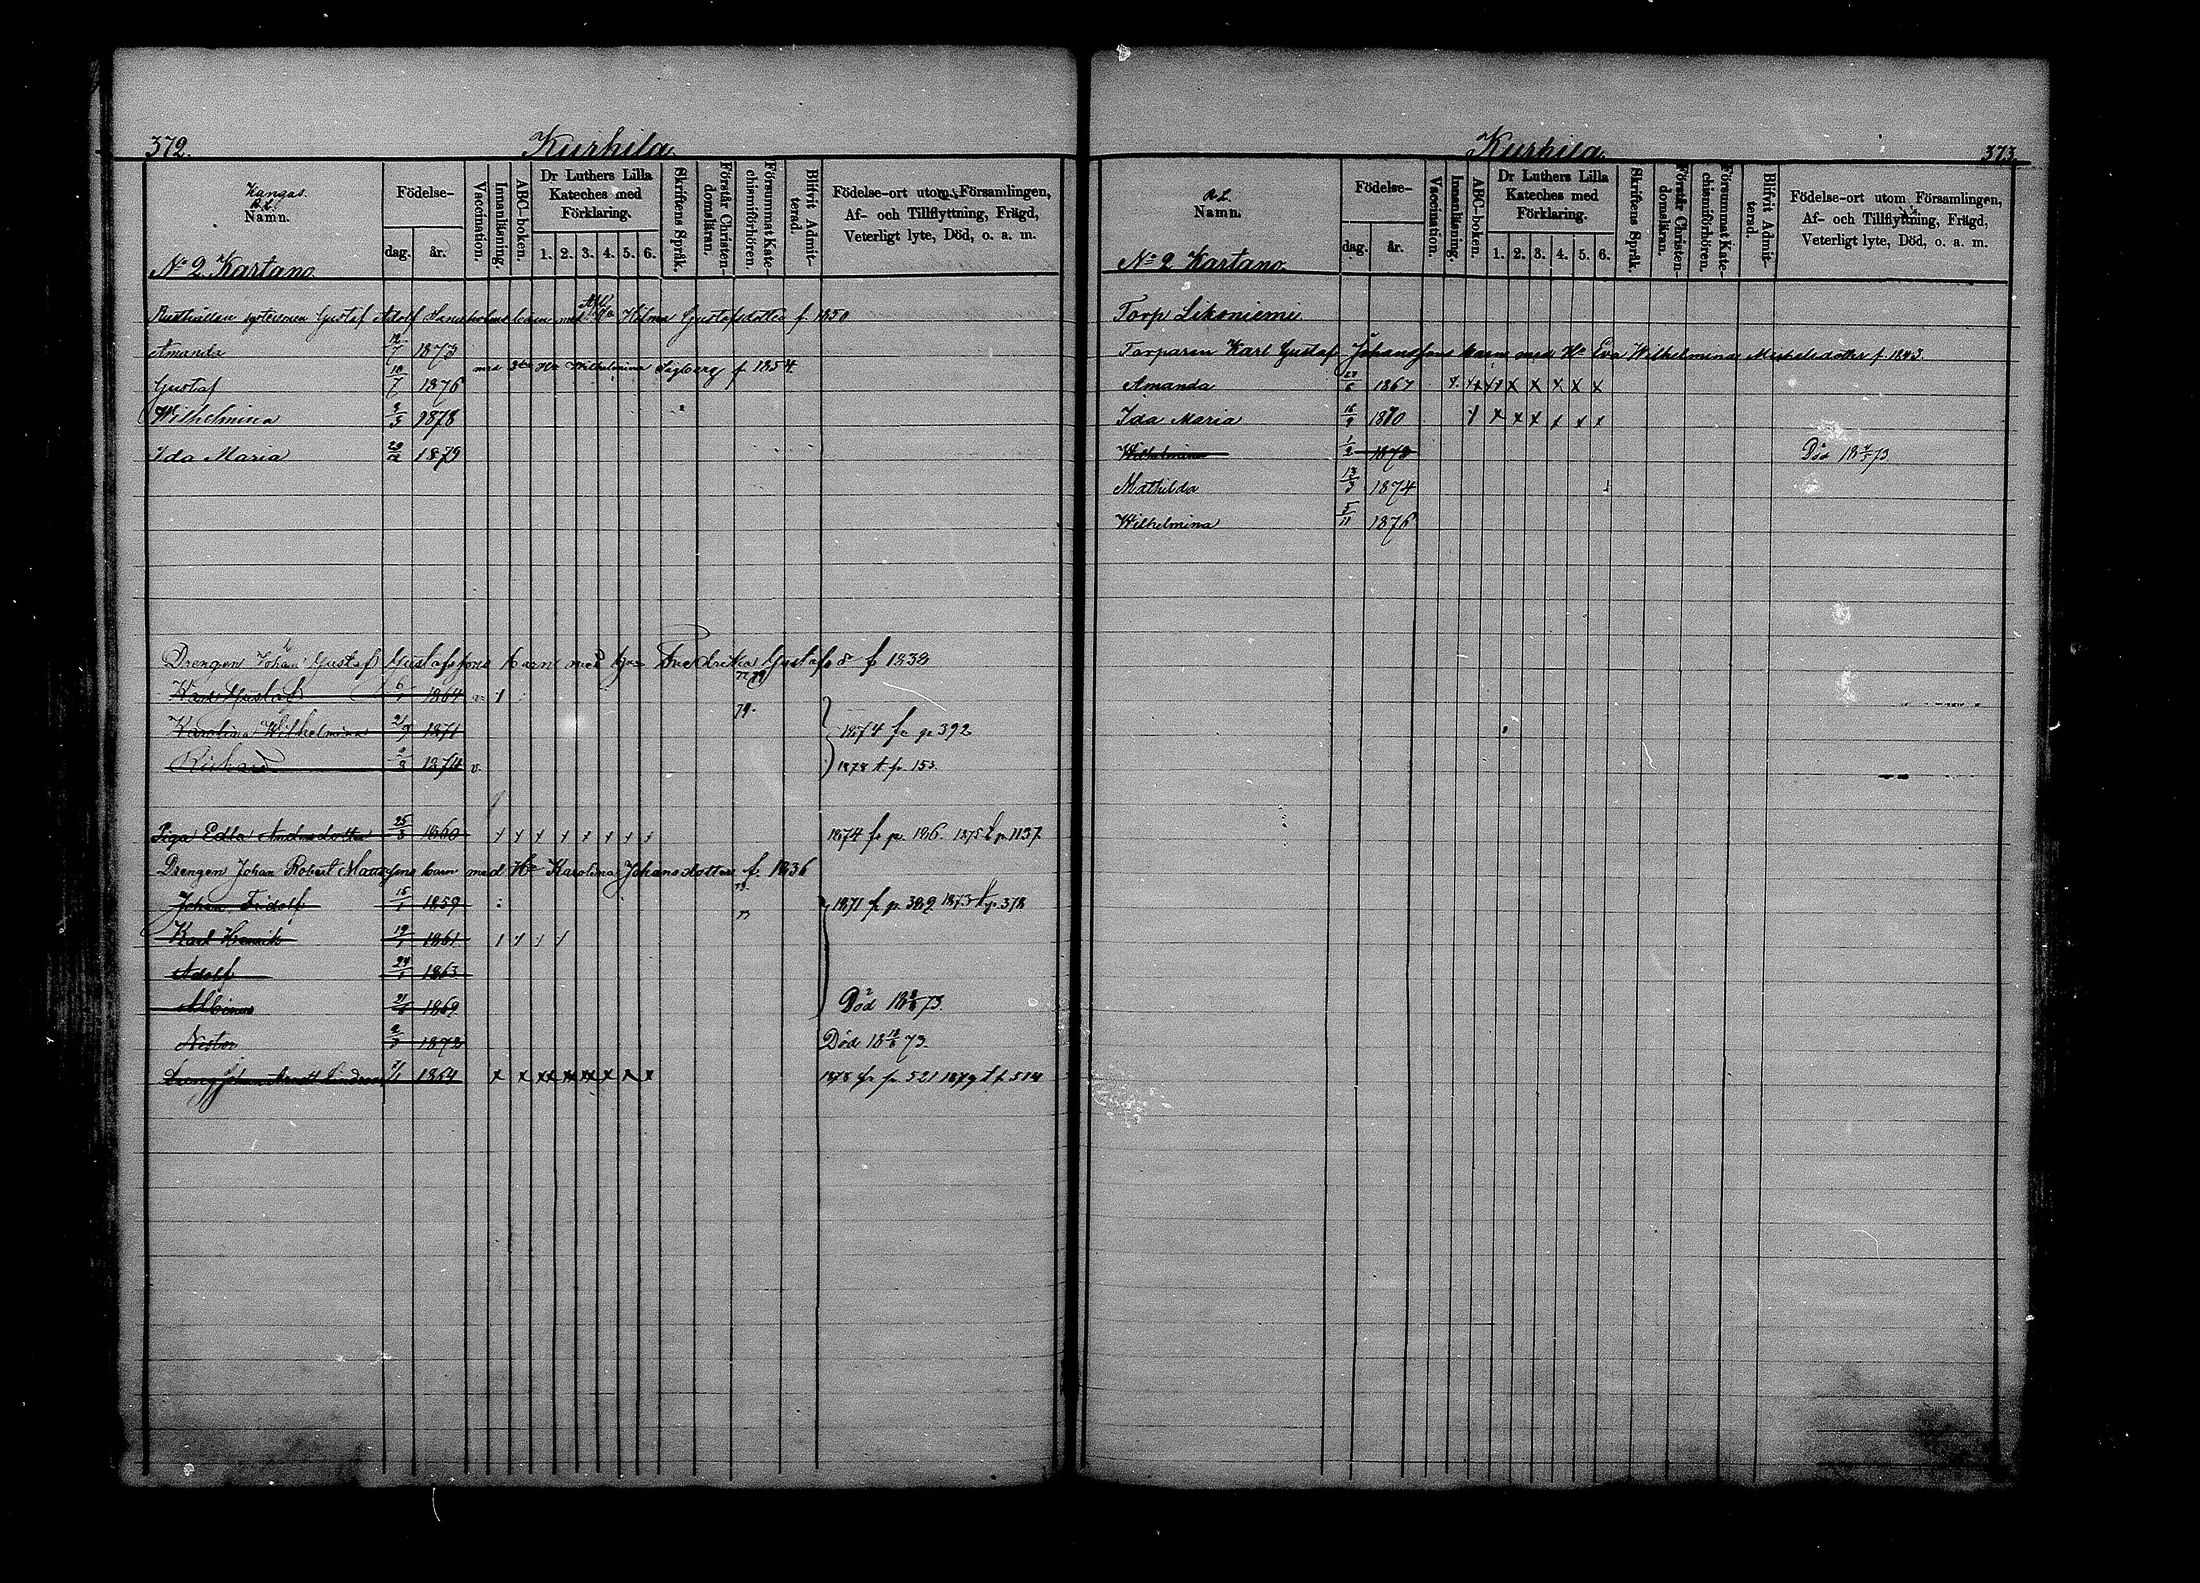 372. Kurhila
Kangas.
A.L.
Namn.
Födelse-
dag. år.
Vaccination.
Innanläsning.
ABC-boken.
Dr Luthers Lilla Kateches med Förklaring.
1. 2. 3. 4. 5. 6.
Skriftens Språk.
Förstår Christendomsläran.
Försummat Katechismiförhören.
Blifvit Admitterad.
Födelse-ort utom Församlingen,
Af- och Tillflyttning, Frägd,
Veterligt lyte, Död, o. a. m.
No 2 Kartano
Gustaf Adolf barn med Hilma Gustafsdotter f. 1850
Amanda 12/7 1873
med Wilhelmina f 1854.
Gustaf 10/7 1876
Wilhelmina 2/3 1878
Ida Maria 1879
Drengen Johan Gustaf Gustafssons barn med Fredrika Gustafs f 1838
Gustaf 1864 v 1
79.
Karolina Wilhelmina 1871 1874 fr p. 392
Richard 1874 v. 1878 t. p. 153.
Piga Edla Andersdotter 25/3 1860 x x x x x x x x 1874 fr p. 186. 1875 t p. 1137.
Drengen Johan Robert barn med Hu Karolina Johansdotter f. 1836
Johan Fridolf 15/1 1859 1871 fr p. 389 1873 t p. 378
Karl Henrik 19/1 1861
Adolf 1863
Albina 1869 Död 73.
Nestor 1872 Död 73.
Johan 1864 x x xx xx xx x x x 1878 fr p. 521 1879 t p. 514
Kurhila 373.
A.L.
Namn.
Födelse-
dag. år.
Vaccination.
Innanläsning.
ABC-boken.
Dr Luthers Lilla Kateches med Förklaring.
1. 2. 3. 4. 5. 6.
Skriftens Språk.
Förstår Christendomsläran.
Försummat Katechismiförhören.
Blifvit Admitterad.
Födelse-ort utom Församlingen,
Af- och Tillflyttning, Frägd,
Veterligt lyte, Död, o. a. m.
No 2 Kartano
Torp Likoniemi
Torparen Karl Gustaf Johanssons barn med Hu Eva Wilhelmina Michelsdotter f. 1843.
Amanda 1867 x x x x x x x
Ida Maria 16/9 1870 x x x x x x x
Wilhelmina 1/2 1873 Död 73
Mathilda 13/3 1874
Wilhelmina 5/11 1876